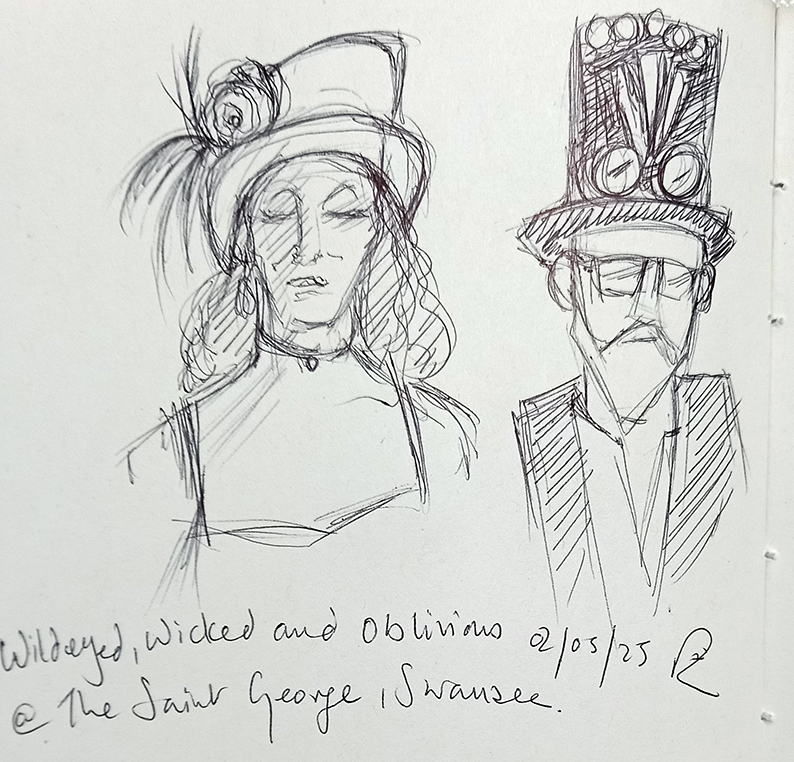 Wildeyed, Wicked and Oblivious 02/05/25 RZ
@ The Saint George, Swansea.